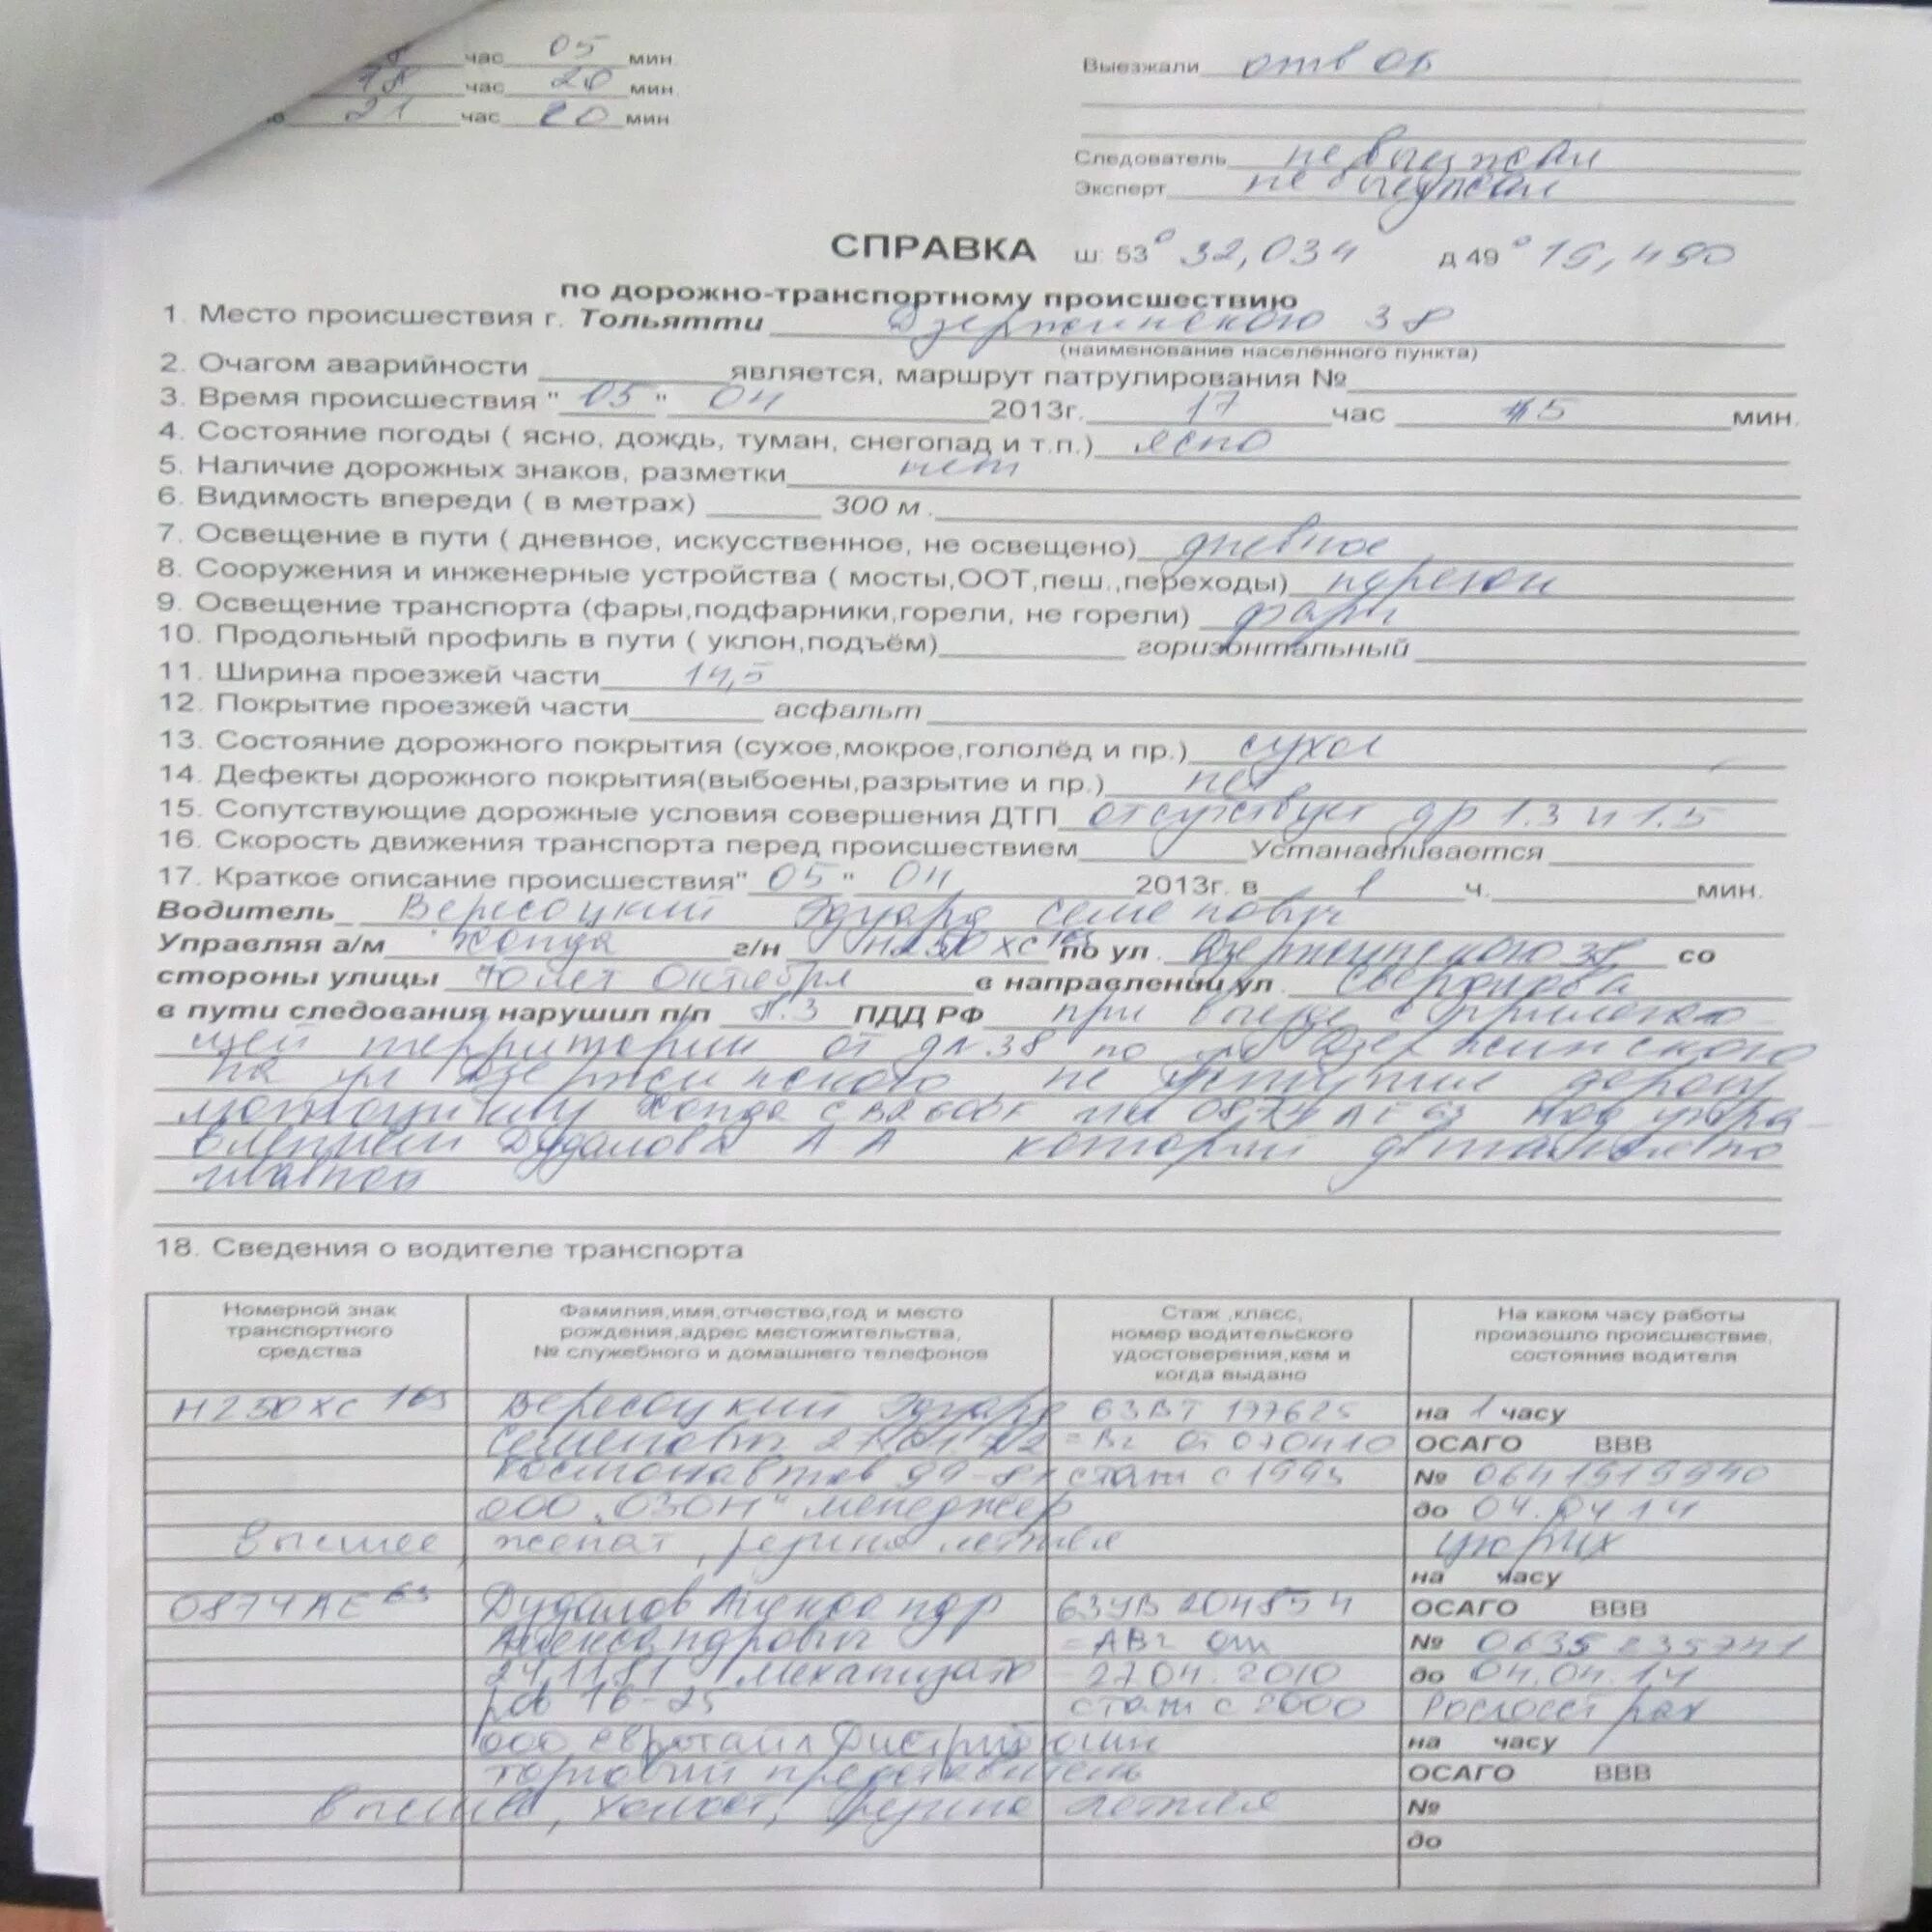 час 05 мин.
18 час 20 мин.
21 час 20 мин
Выезжали отв ОБ
Следователь не выезжал
Эксперт не выезжал
СПРАВКА ш: 53° 32,034 д 49° 15,490
по дорожно-транспортному происшествию
1. Место происшествия г. Тольятти Дзержинского 38
(наименование населённого пункта)
2. Очагом аварийности является, маршрут патрулирования №
3. Время происшествия "05" 04 2013г. 17 час 45 мин.
4. Состояние погоды ( ясно, дождь, туман, снегопад и т.п.) ясно
5. Наличие дорожных знаков, разметки нет
6. Видимость впереди ( в метрах) 300 м .
7. Освещение в пути ( дневное, искусственное, не освещено) дневное
8. Сооружения и инженерные устройства ( мосты,ООТ,пеш.,переходы) перегон
9. Освещение транспорта (фары,подфарники,горели, не горели) фары
10. Продольный профиль в пути ( уклон,подъём) горизонтальный
11. Ширина проезжей части 14,5
12. Покрытие проезжей части асфальт
13. Состояние дорожного покрытия (сухое,мокрое,гололёд и пр.) сухое
14. Дефекты дорожного покрытия(выбоены,разрытие и пр.) нет
15. Сопутствующие дорожные условия совершения ДТП отсутствует др 1.3 и 1.5
16. Скорость движения транспорта перед происшествием Устанавливается
17. Краткое описание происшествия" 05 " 04 2013г. в 1 ч. мин.
Водитель Вересоцкий Эдуард Семенович
Управляя а/м Хонда г/н Н250ХС163 по ул . Дзержинского 38 со
стороны улицы 40 лет Октября в направлении ул . Свердлова
в пути следования нарушил п/п 8.3 ПДД РФ при выезде с прилегаю
щей территории от д. 38 по ул Дзержинского
на ул Дзержинского не уступил дорогу
мотоциклу Хонда 0874 АЕ 63 под упра
влением Дудалова А А который двигался по
главной
18. Сведения о водителе транспорта
Номерной знак транспортного средства
Фамилия,имя,отчество,год и место рождения,адрес местожительства, № служебного и домашнего телефонов
Стаж ,класс, номер водительского удостоверения,кем и когда выдано
На каком часу работы произошло происшествие, состояние водителя
Н250ХС 163 Вересоцкий Эдуард 63ВТ 177625 на 1 часу
Семенович 27.01.72 от 070410 ОСАГО ВВВ
Космонавтов стаж с 1995 № 0641919940
ООО "ОЗОН" менеджер до 04.04.14
высшее, женат, резина летняя Цюрих
на часу
0874АЕ 63 Дудалов Александр 63УВ 204854 ОСАГО ВВВ
Александрович = АВг от № 0635235741
24.11.81 Механизато 27.04.2010 до 04.04.14
ров 16-25 стаж с 2000 Росгосстрах
ООО Евротайл Дистрибюшн на часу
торговый представитель ОСАГО ВВВ
высшее, холост, резина летняя №
до